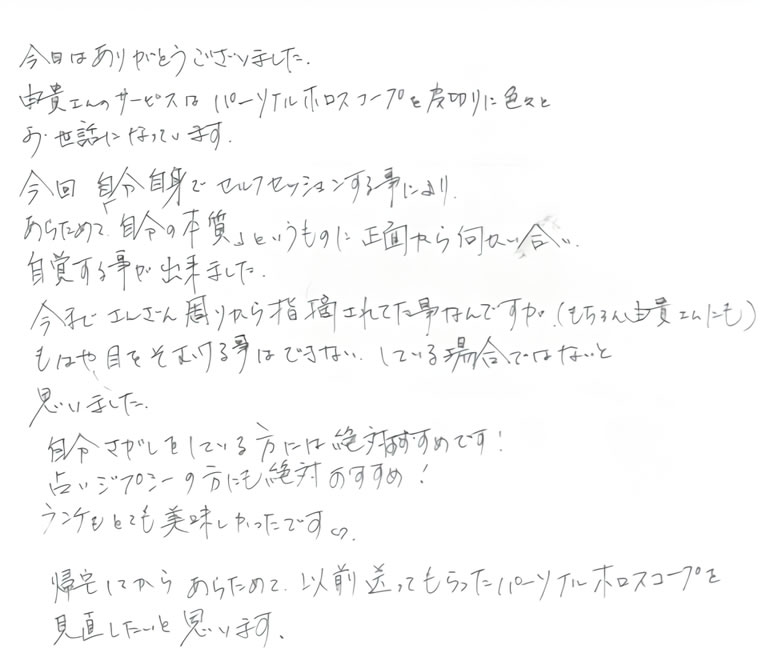 今日はありがとうございました.
由貴さんのサービスは パーソナルホロスコープを皮切りに色々と
お世話になっています.
今回 自分自身で セルフセッションする事により.
あらためて「自分の本質」というものに 正面から向かい合い.
自覚する事が出来ました.
今まで さんざん 周りから指摘されてた事なんですが.(もちろん由貴さんにも)
もはや、目をそむける事はできない. している場合ではないと
思いました.
自分さがしをしている方には絶対おすすめです!
占いジプシーの方にも絶対おすすめ!
ランチもとても美味しかったです♡.
帰宅してから あらためて. 以前送ってもらったパーソナルホロスコープを
見直したいと思います.